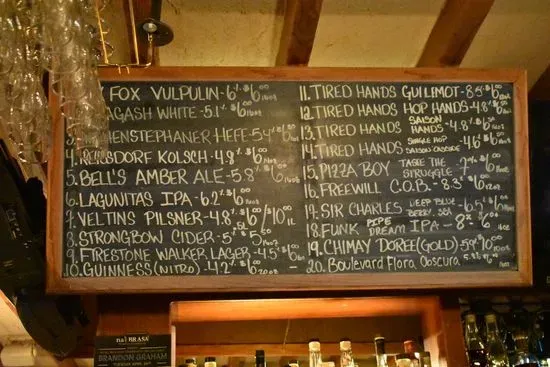 FOX VULPULIN - 6% $6.00 16oz
AGASH WHITE - 5.1% $6.00 16oz
HENSTEPHANER HEFE - 5.4% $6.00
4. REISSDORF KOLSCH - 4.8% $6.00 16oz
5. BELL'S AMBER ALE - 5.8% $6.00 16oz
6. LAGUNITAS IPA - 6.2% $6.00 16oz
7. VELTINS PILSNER - 4.8% $6.00/$10.00 .5L 1L
8. STRONGBOW CIDER - 5% $5.50 16oz
9. FIRESTONE WALKER LAGER - 4.5% $6.00 16oz
10. GUINNESS (NITRO) - 4.2% $6.00 20oz
11. TIRED HANDS GUILIMOT - 8.5% $6.00
12. TIRED HANDS HOP HANDS - 4.8% $6.00 16oz
13. TIRED HANDS SAISON HANDS - 4.8% $6.00 16oz
14. TIRED HANDS SINGLE HOP SAISON CASCADE - 4.8% $6.00 16oz
15. PIZZA BOY TASTE THE STRUGGLE - 7% $6.00
16. FREEWILL C.O.B. - 8.3% $6.00
19. SIR CHARLES DEEP BLUE BERRY - 6.5% $6.00
18. FUNK PIPE DREAM IPA - 8% $6.00
19. CHIMAY DOREE (GOLD) 5% $10.00
20. Boulevard Flora Obscura 5.8% $6.00
na! BRASA
BRANDON GRAHAM